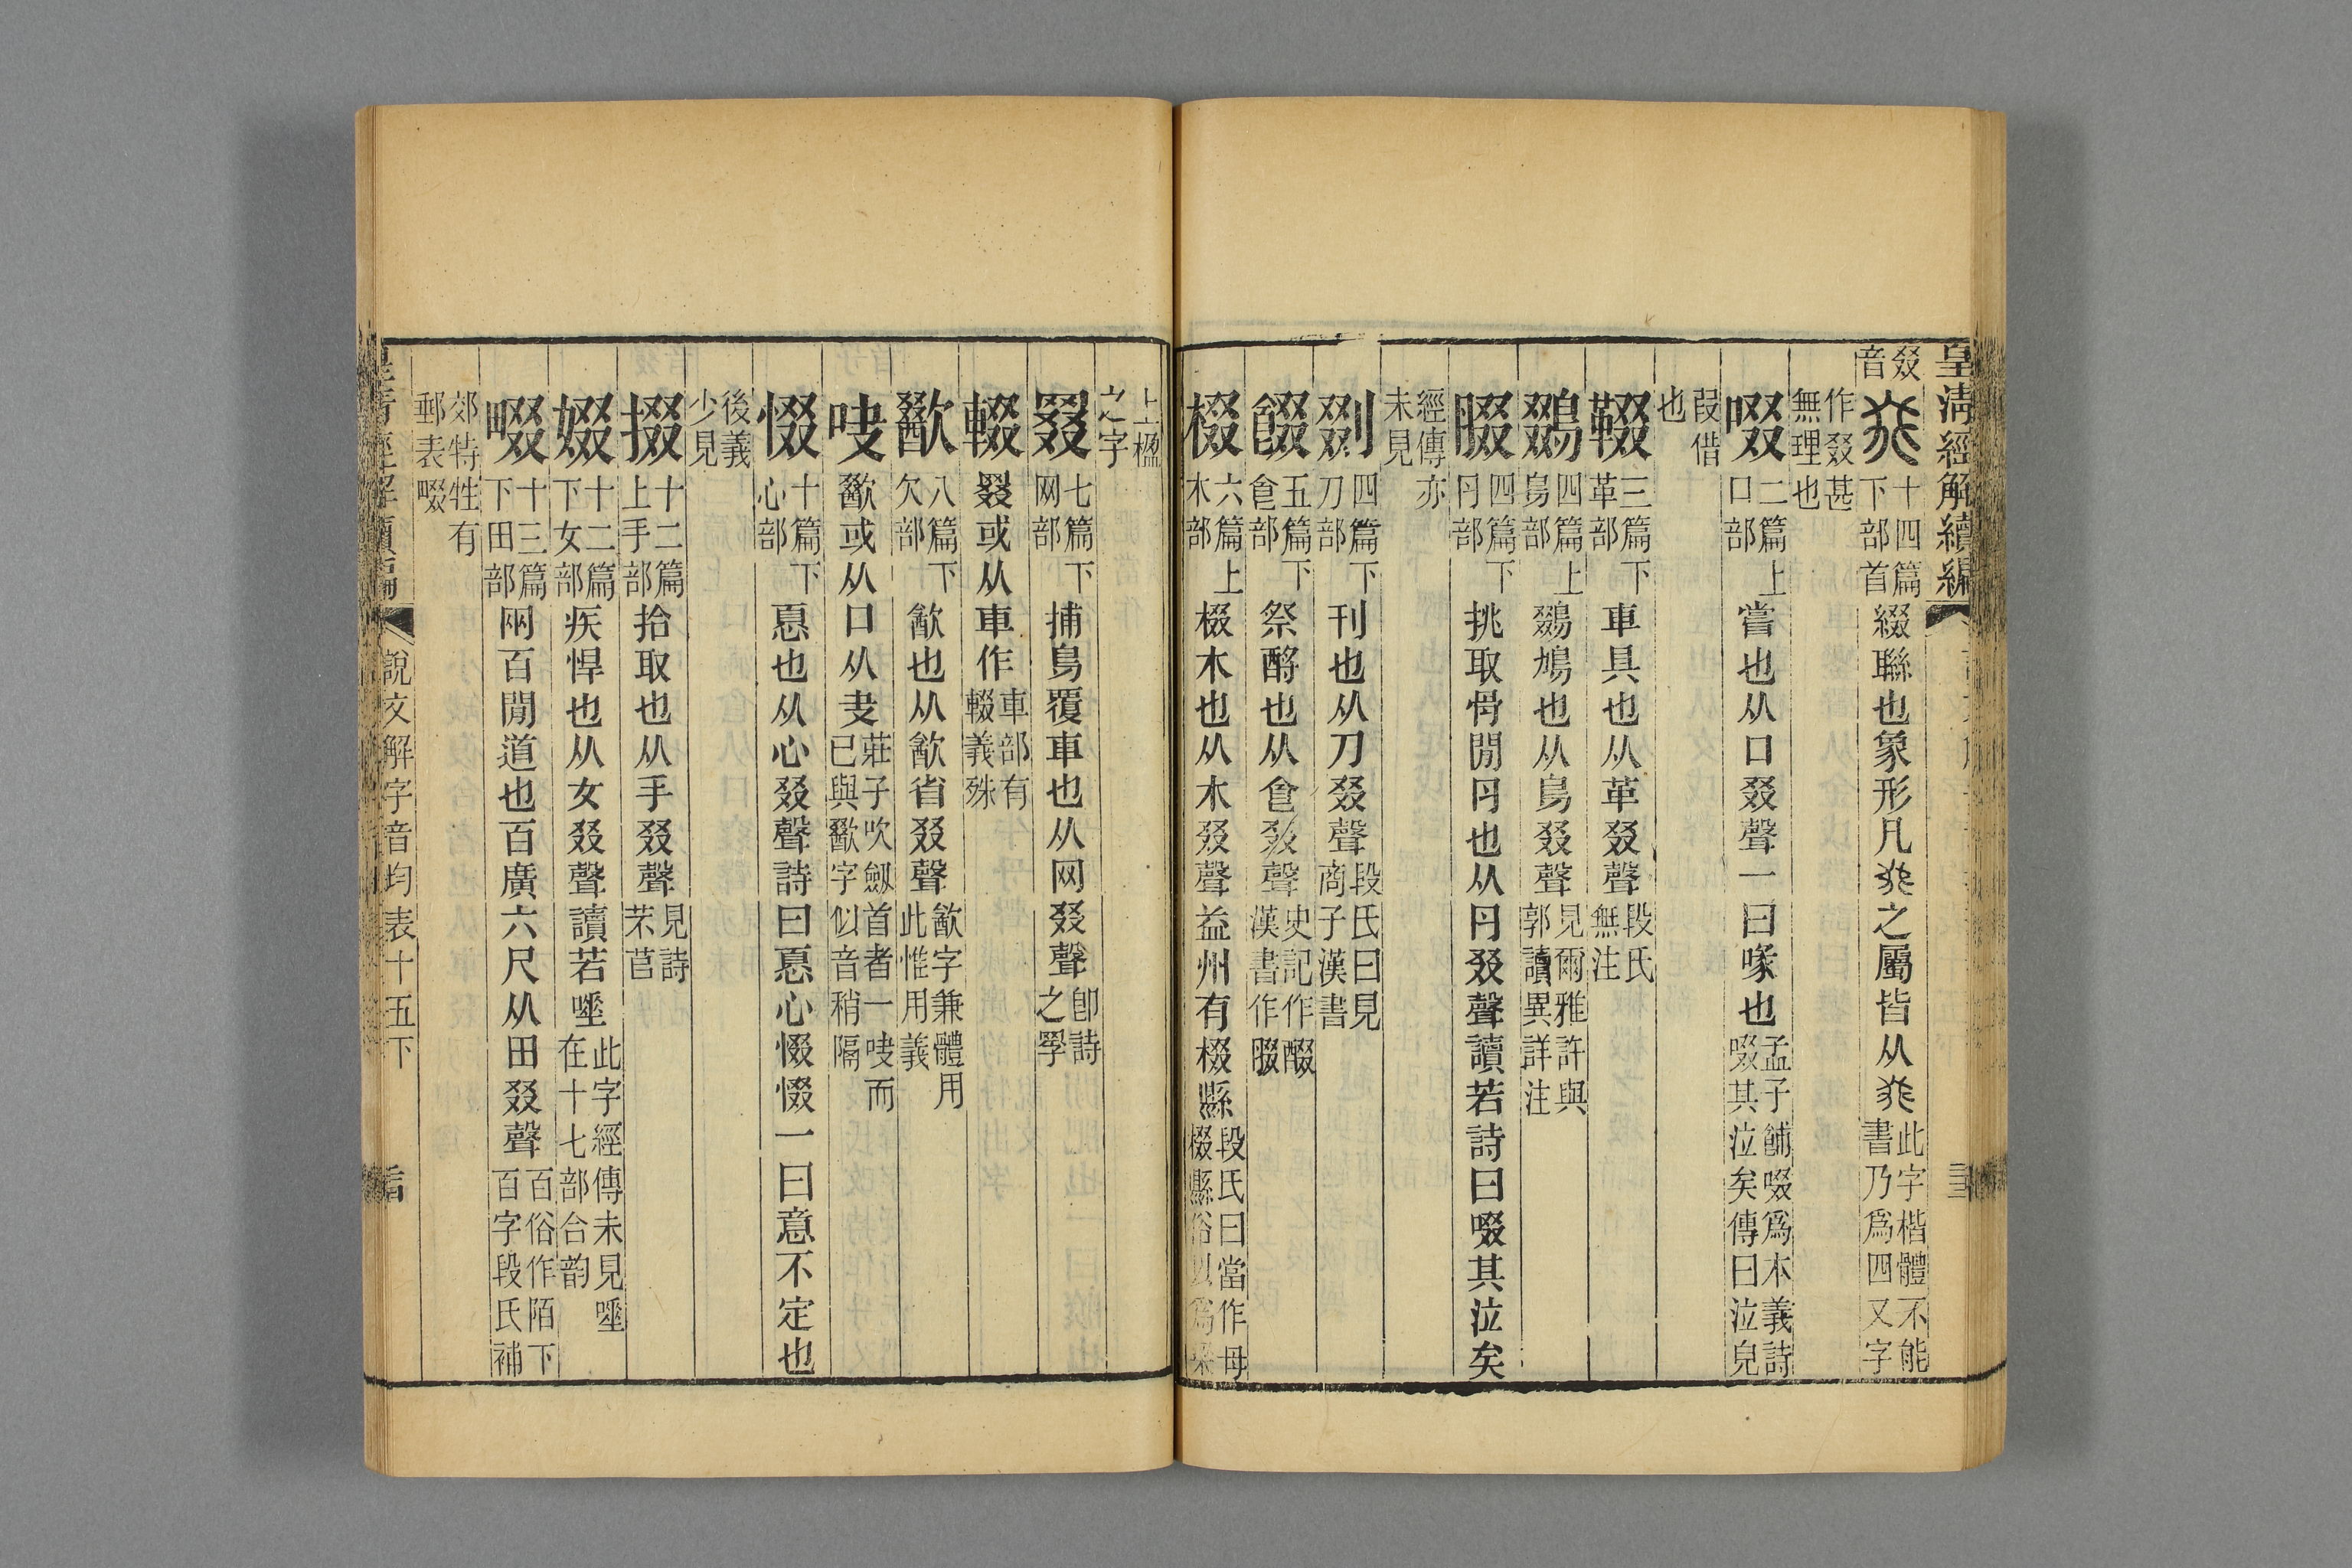 皇淸經解續編
叕音 叕 十四篇下部首 綴聯也象形凡叕之屬皆从叕 此字楷體不能書乃爲四又字
作叕甚無理也
啜 二篇上口部 嘗也从口叕聲一曰喙也 孟子餔啜爲本義詩啜其泣矣傳曰泣皃
叚借也
輟 三篇下革部 車具也从革叕聲 段氏無注
鵽 四篇上鳥部 鵽鳩也从鳥叕聲 見爾雅許與郭讀異詳注
腏 四篇下肉部 挑取骨閒肉也从肉叕聲讀若詩曰啜其泣矣
經傳亦未見
剟 四篇下刀部 刊也从刀叕聲 段氏曰見商子漢書
餟 五篇下食部 祭酹也从食叕聲 史記作醊漢書作腏
棳 六篇上木部 棳木也从木叕聲益州有棳縣 段氏曰當作毋棳縣俗以爲梁
上楹之字
罬 七篇下网部 捕鳥覆車也从网叕聲 卽詩之罦
輟 罬或从車作 車部有輟義殊
歠 八篇下欠部 㱃也从㱃省叕聲 㱃字兼體用此惟用義
吷 歠或从口从夬 莊子吹劔首者一吷而已與歠字似音稍隔
惙 十篇下心部 惪也从心叕聲詩曰惪心惙惙一曰意不定也
後義少見
掇 十二篇上手部 拾取也从手叕聲 見詩芣苢
娺 十二篇下女部 疾悍也从女叕聲讀若唾 此字經傳未見唾在十七部合韵
畷 十三篇下田部 兩百閒道也百廣六尺从田叕聲 百俗作陌下百字段氏補
郊特牲有郵表畷
說文解字音均表十五下